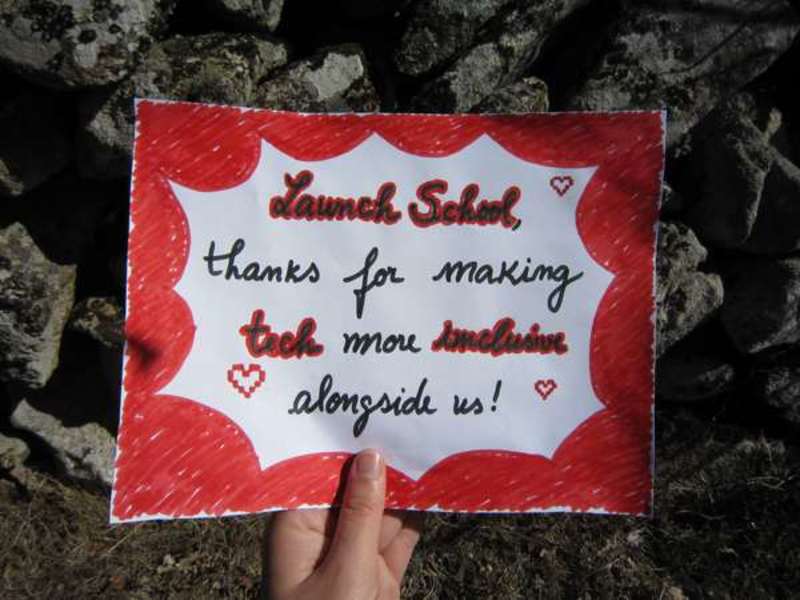 Launch School,
thanks for making
tech more inclusive
alongside us!